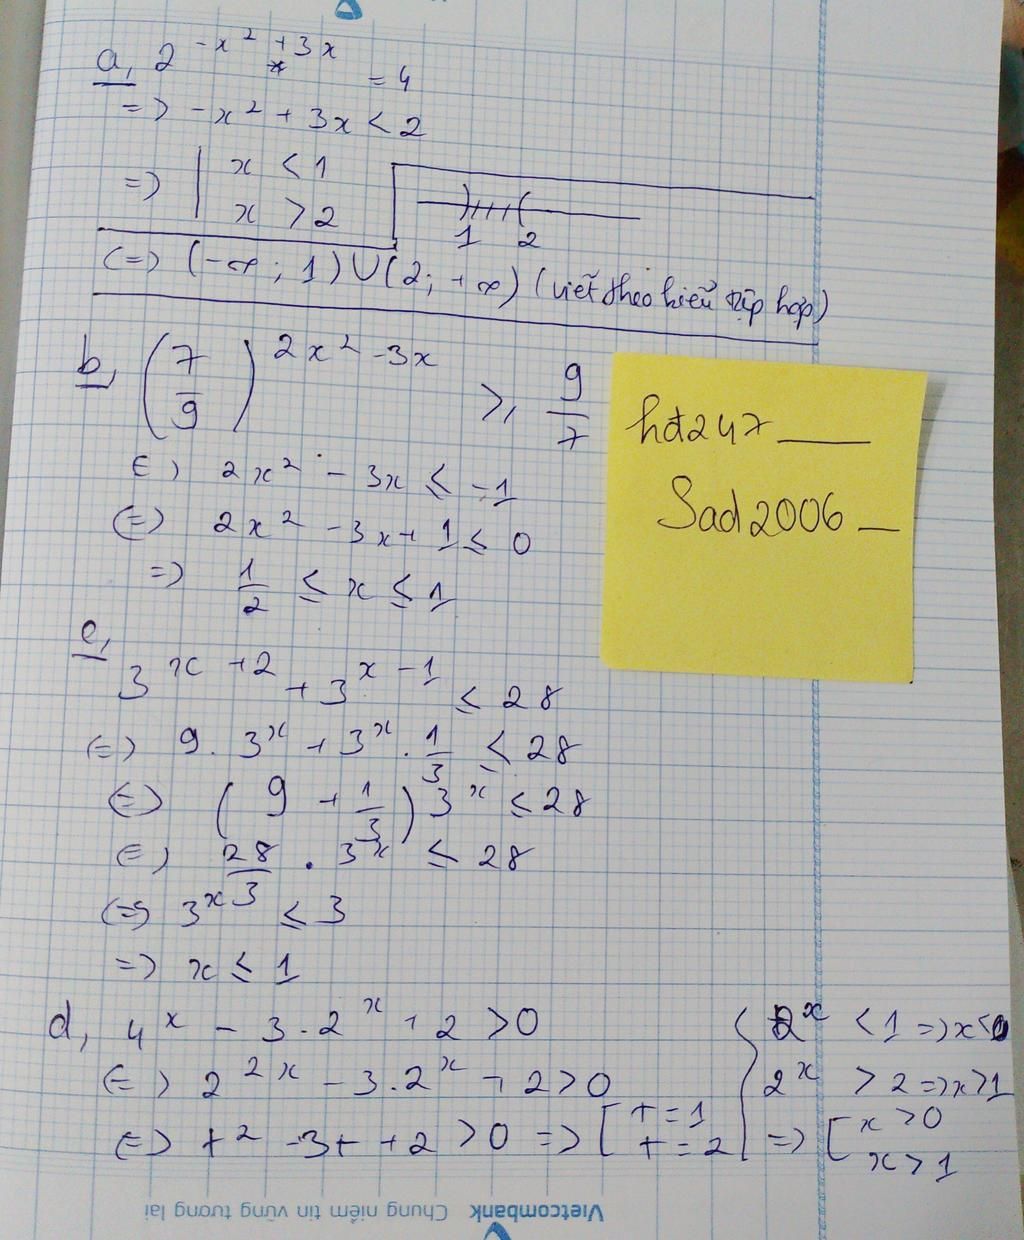 a, 2^{-x^2+3x} = 4
=> -x^2 + 3x < 2
=> | x < 1
x > 2
1 2
<=> (-∞; 1) ∪ (2; +∞) (viết theo hiểu tập hợp)
b, (7/9)^{2x^2-3x} ≥ 9/7
<=> 2x^2 - 3x ≤ -1
<=> 2x^2 - 3x + 1 ≤ 0
=> 1/2 ≤ x ≤ 1
hđ247
Sad2006
c, 3^{x+2} + 3^{x-1} ≤ 28
<=> 9 . 3^x + 3^x . 1/3 ≤ 28
<=> (9 + 1/3) 3^x ≤ 28
<=> 28/3 . 3^x ≤ 28
<=> 3^x ≤ 3
=> x ≤ 1
d, 4^x - 3.2^x + 2 > 0
<=> 2^{2x} - 3.2^x + 2 > 0
<=> t^2 - 3t + 2 > 0 => [ t = 1
t = 2
2^x < 1 => x < 0
2^x > 2 => x > 1
=> [ x > 0
x > 1
Vietcombank Chung niềm tin vững tương lai